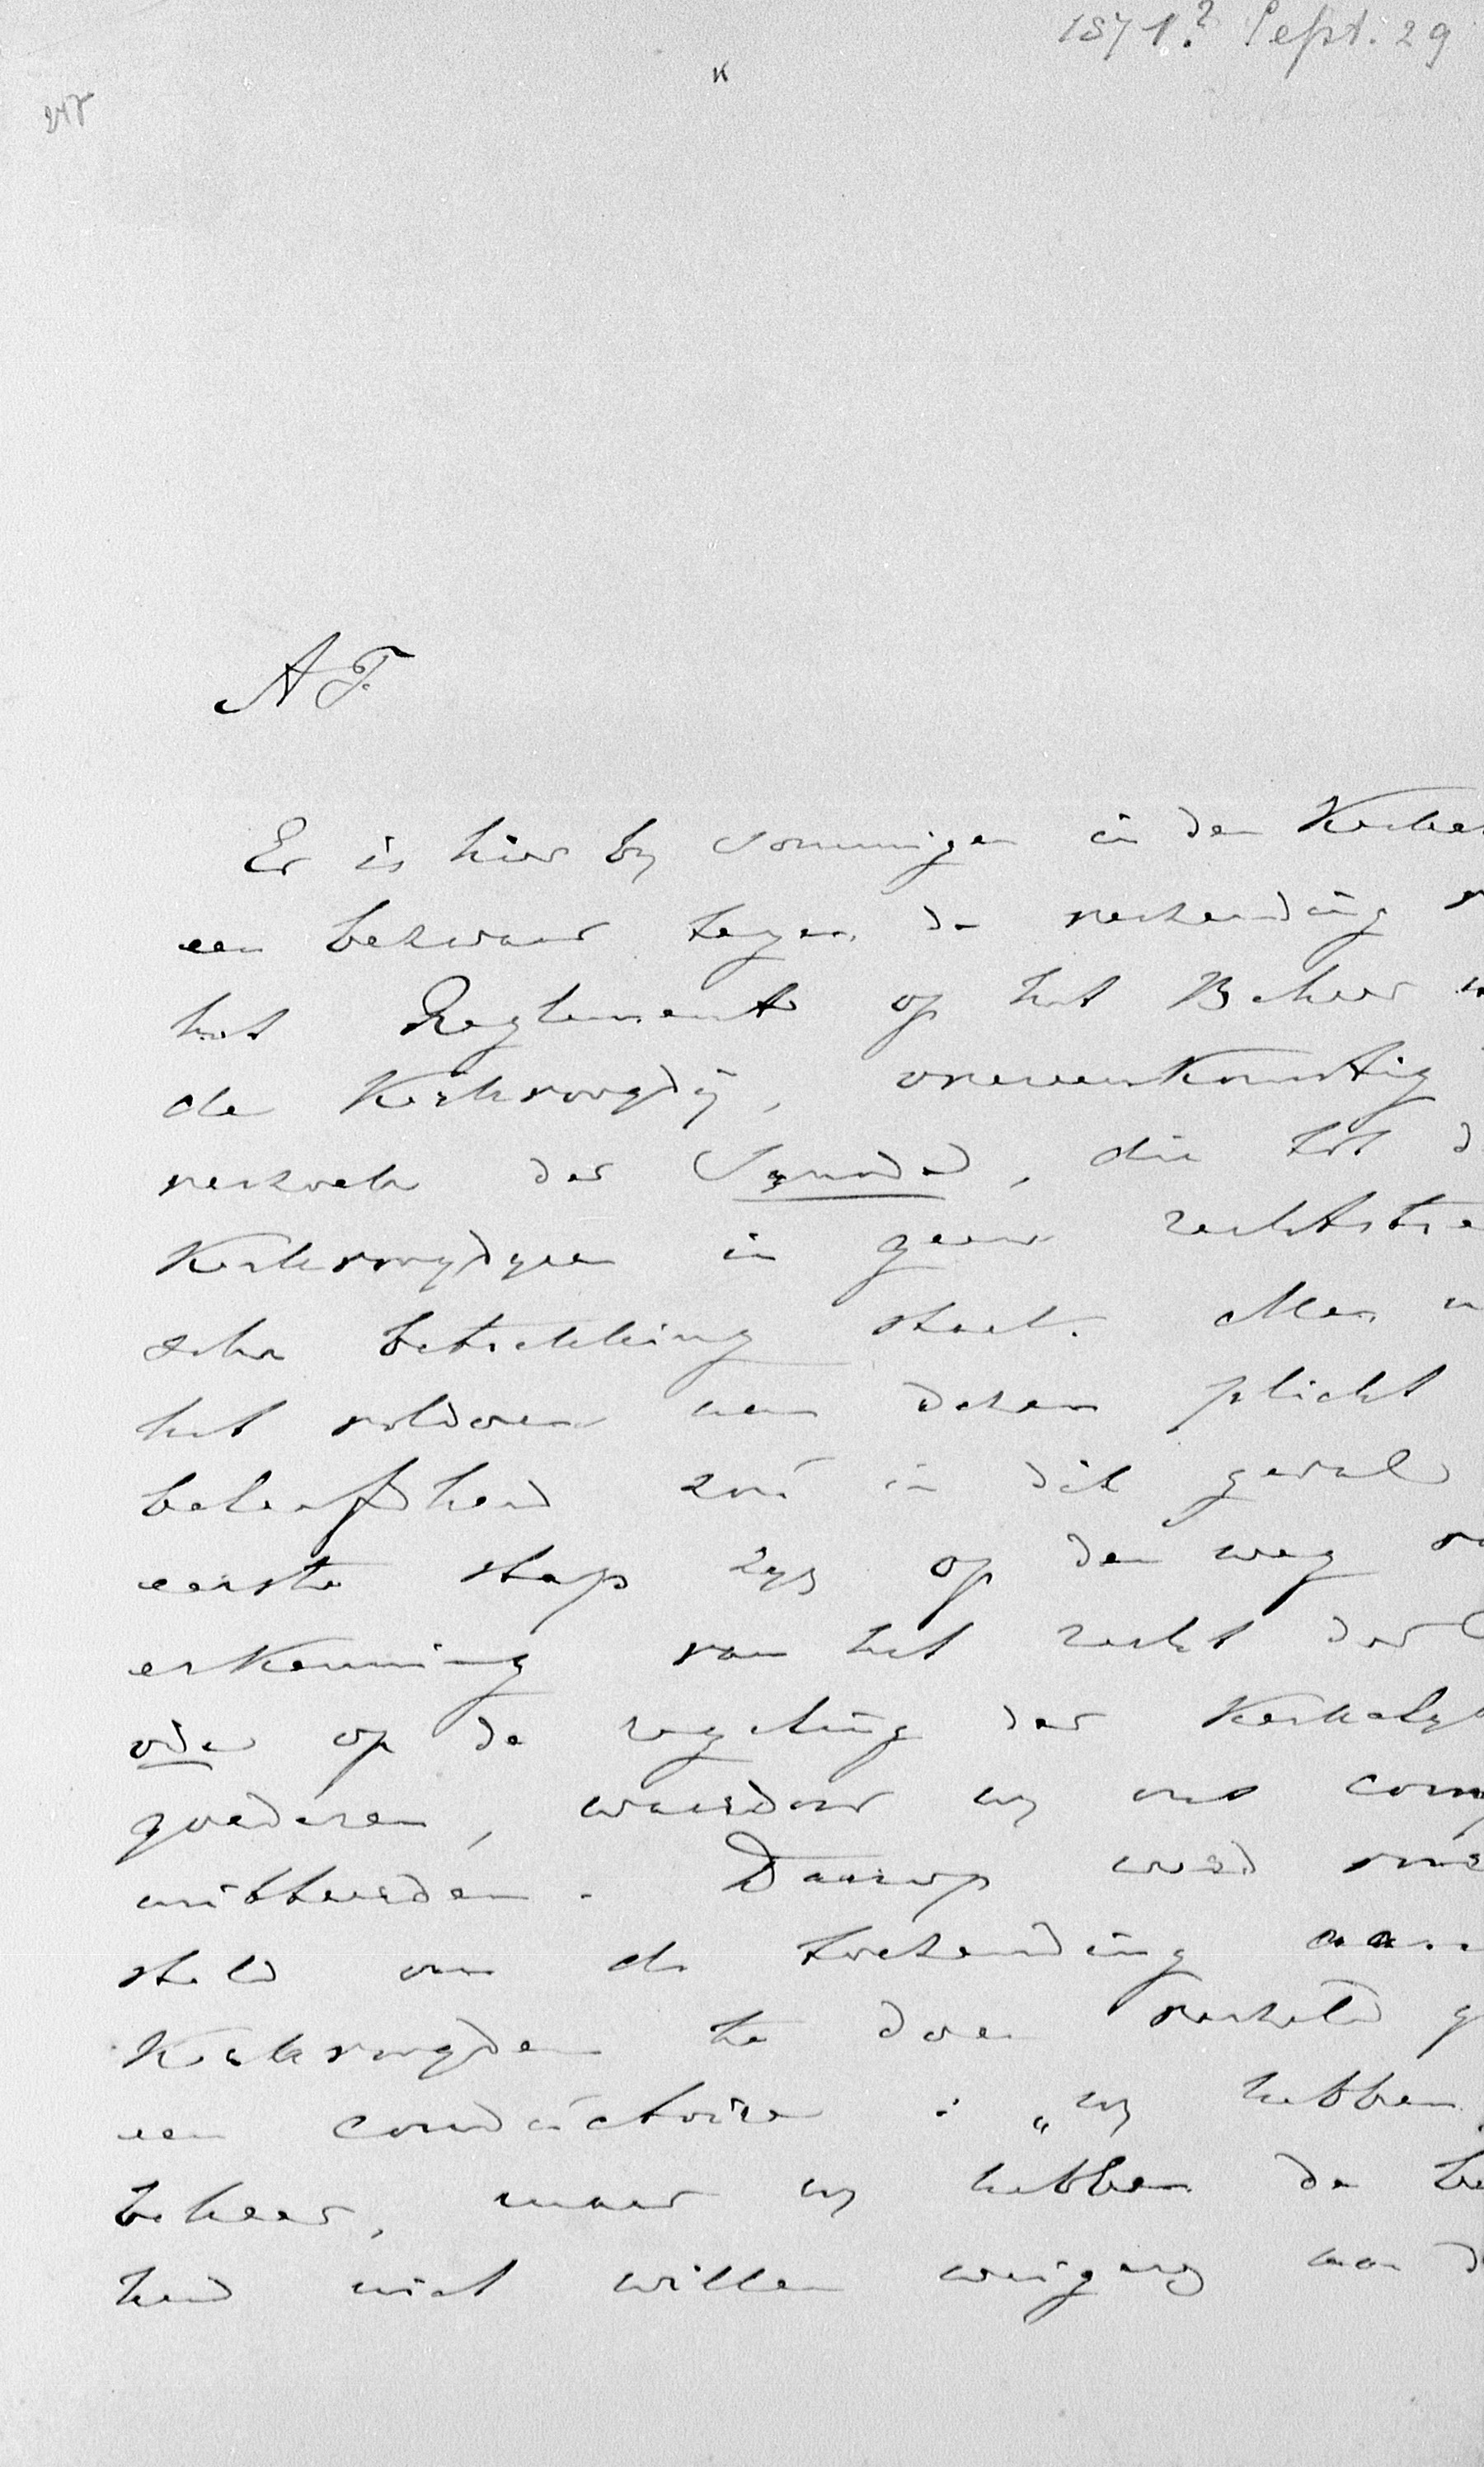 1871? Sept. 29
K
A F.
Er is hier by sommigen in den Kerke
een bezwaar tegen de verzending v
het Reglement op het Beheer v
de Kerkvoogdij, overeenkomstig
verzoek der Synode, die tot d
Kerkvoogdyen in geene rechtstre
sche betrekking staat. Men
het voldoen aan dezen plicht
beleefdheid zou in dit geval
eerste stap zyn op den weg va
erkenning van het recht der
ode op de regeling der Kerkelyk
goederen, waardoor wy ons comp
uitbreiden. Daarop werd
steld om de toezending aan
Kerkvoogden te doen verzeld g
een conductoire : „wy hebben
beheer, maar wy hebben de be
heid niet willen weigeren aan d